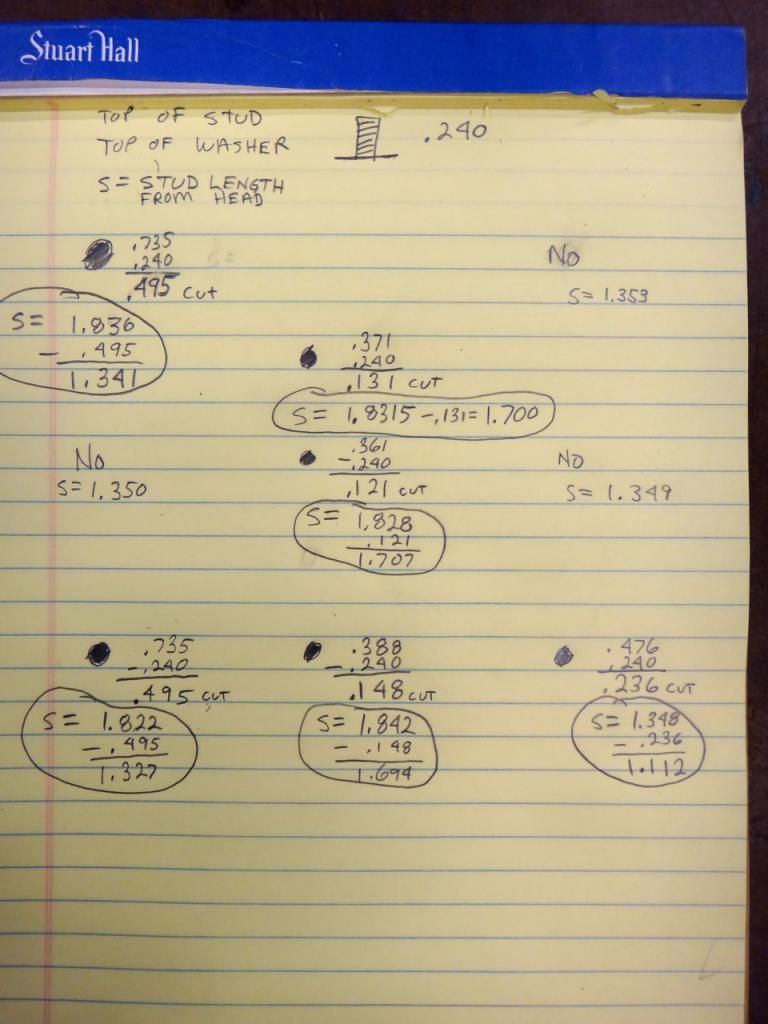 Stuart Hall
TOP OF STUD
TOP OF WASHER
.240
S = STUD LENGTH
FROM HEAD
.735
.240
.495 CUT
S=
No
S= 1.353
S= 1.836
- .495
1.341
.371
.240
.131 CUT
S= 1.8315 -.131= 1.700
No
S= 1.350
.361
-.240
.121 CUT
S= 1.828
.121
1.707
No
S= 1.349
.735
-.240
.495 CUT
S= 1.822
- .495
1.327
.388
-.240
.148 CUT
S= 1.842
- .148
1.694
.476
.240
.236 CUT
S= 1.348
- .236
1.112